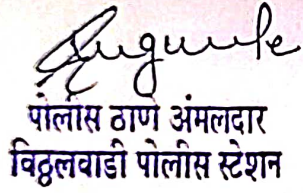 पोलीस ठाणे अंमलदार
विठ्ठलवाडी पोलीस स्टेशन